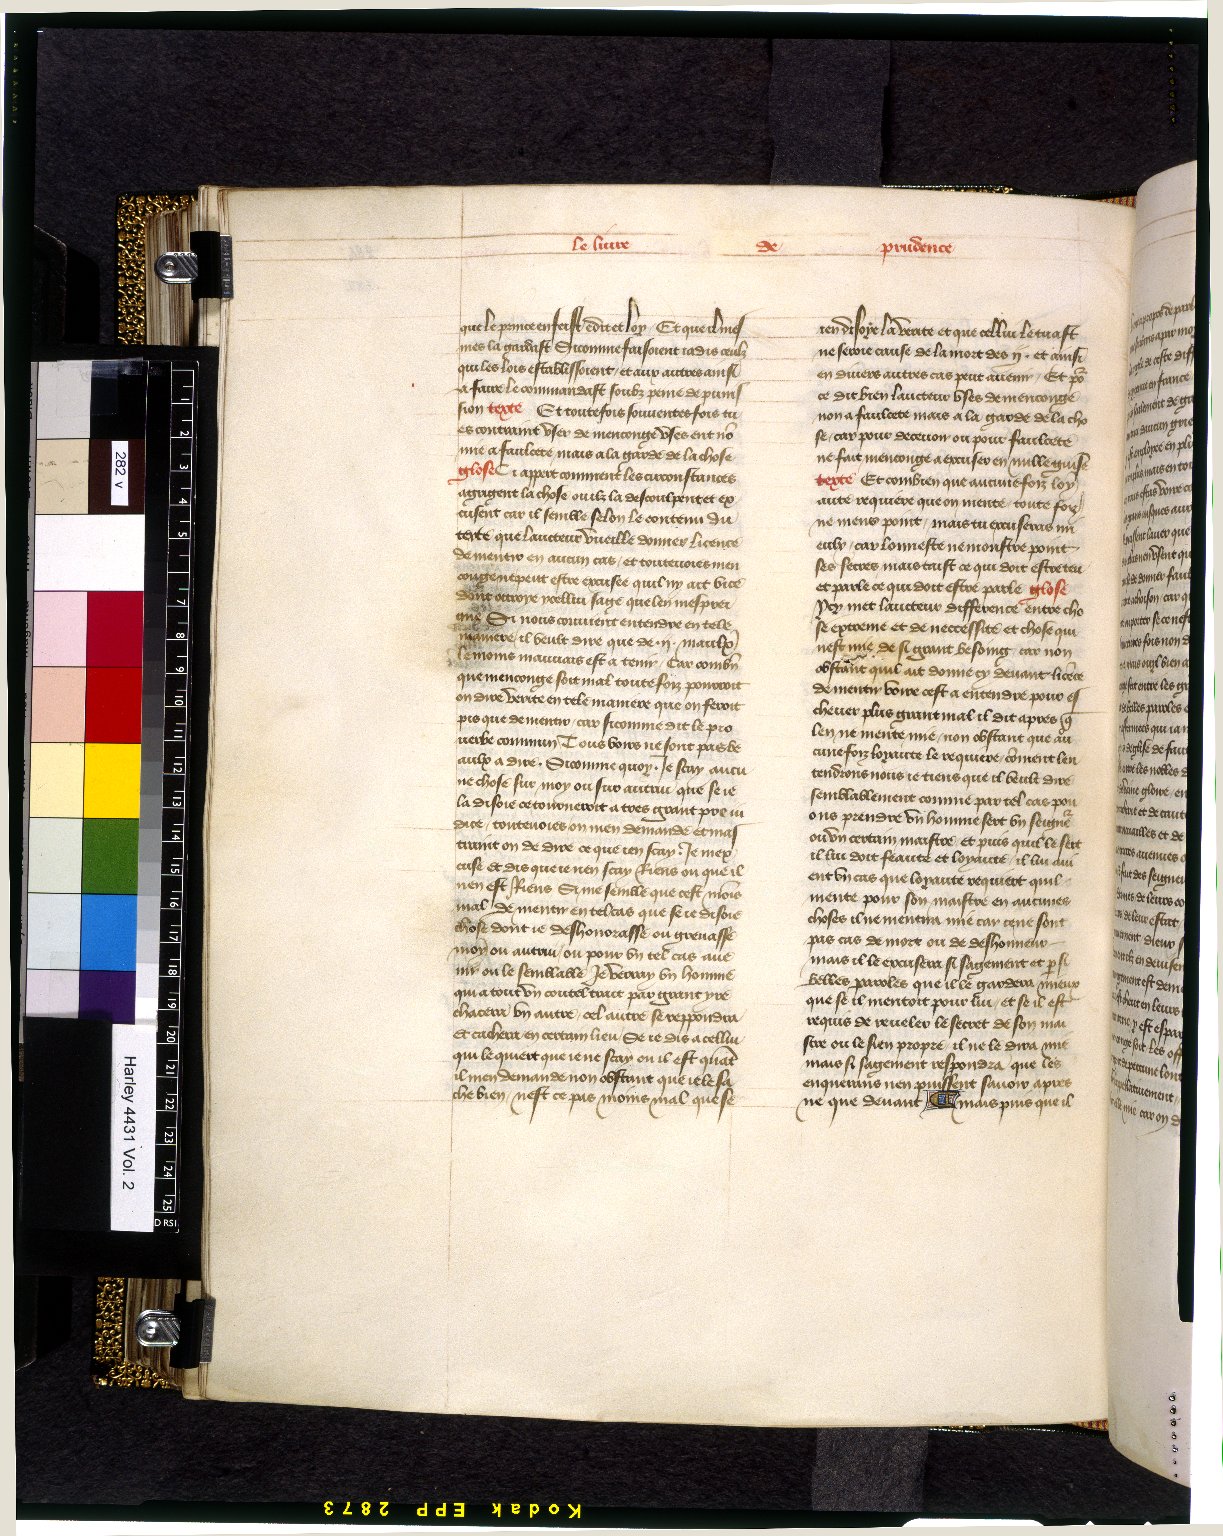 le livre de prudence
que le prince en feist edit et loy / Et que il mes
mes la gardast Sicomme faisoient iadis ceulx
qui les lois establissoient / et aux autres ainsi
a faire le commandast soubz peine de puni
sion texte Et toutefois souventes fois tu
es contraint user de mençonge uses ent nō
mie a faulcete mais a la garde de la chose
glose Ci appert comment les circonstances
agregent la chose ou ilz la descoulpent et ex
cusent car il semble selon le contenu du
texte que laucteur vueille donner licence
de mentir en aucun cas / et toutevoies men
conge ne peut estre excusee quil ny ait vice
dont ottroye ycellui sage que len mesprei
gne Si nous convient entendre en tele
maniere il veult dire que de .ii. maulx
le moins mauvais est a tenir / Car combn
que mençonge soit mal toute foiz pouroit
on dire verite en tele maniere que on feroit
pis que de mentir / car sicomme dit le pro
verbe commun Tous voirs ne sont pas be
aulx a dire . Sicomme quoy . Je scay aucu
ne chose sur moy ou sur autrui que se ie
la disoie ce tourneroit a tres grant preiu
dice / toutevoies on men demande et mas
traint on de dire ce que ien scay : Je mex
cuse et dis que ie nen scay Riens ou que il
nen est Riens Si me semble que cest mois
mal de mentir en tel cas que se ie disoie
chose dont ie deshonorasse ou grevasse
moy ou autrui / ou pour un tel cas ave
nir ou le semblable Je verray un homme
qui a tout un coutel trait par grant yre
chacera un autre / cel autre se reppondra
et cachera en certain lieu / Se ie dis a cellui
qui le quiert que ie ne scay ou il est quāt
il men demande non obstant que ie le sa
che bien / nest ce pas moins mal que se
ien disoye la verite et que cellui le tuast
ne seroie cause de la mort des ii . et ainsi
en divers autres cas peut avenir / Et po
ce dit bien laucteur uses de mençonge
non a faulcete mais a la garde de la cho
se / car pour decevoir ou pour faulcete
ne fait mençonge a excuser en nulle guise
texte Et combien que aucune foiz loy
aute requiere que on mente / toute foiz
ne mens point / mais tu excuseras mi
eulx / car lonneste ne monstre point
ses secres mais taist ce qui doit estre teu
et parle ce qui doit estre parle glose
Ycy met laucteur difference entre cho
se extreme et de neccessite et chose qui
nest mie de si grant besoing car non
obstant quil ait donne cy devant licēce
de mentir voire cest a entendre pour es
chever plus grant mal il dit apres q
len ne mente mie / non obstant que au
cune foiz loyaute le requiere / cōment len
tendrons nous ie tiens que il veult dire
semblablement comme par tel cas pou
ons prendre un homme sert un seigne
ou un certain maistre / et puis quil le sert
il lui doit feaute et loyaute / il lui avi
ent un cas que loyaute requiert quil
mente pour son maistre en aucunes
choses il ne mentira mie car ce ne sont
pas cas de mort ou de deshonneur
mais il le excusera si sagement et p si
belles paroles que il le gardera mieux
que se il mentoit pour lui / et se il est
requis de reveler le secret de son mai
stre ou le sien propre / il ne le dira mie
mais si sagement respondra que les
enquerans nen puissent savoir apres
ne que devant mais puis que il
282 v
Harley 4431 Vol. 2
Kodak EPP 2873